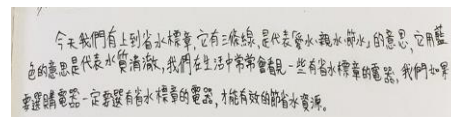 今天我們有上到省水標章,它有三條線,是代表愛水、親水、節水」的意思,它用藍
色的意思是代表水質清澈,我們在生活中常常會看見一些有省水標章的電器,我們如果
要選購電器一定要選有省水標章的電器,才能有效的節省水資源。